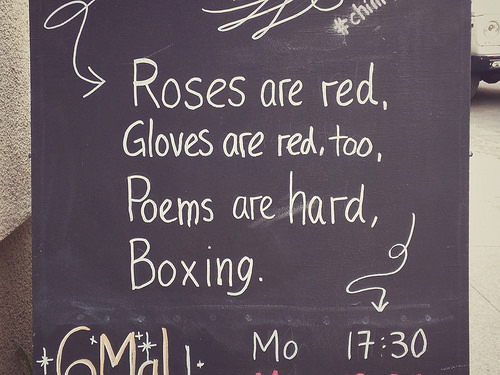 Roses are red,
Gloves are red, too,
Poems are hard,
Boxing.
Mo 17:30